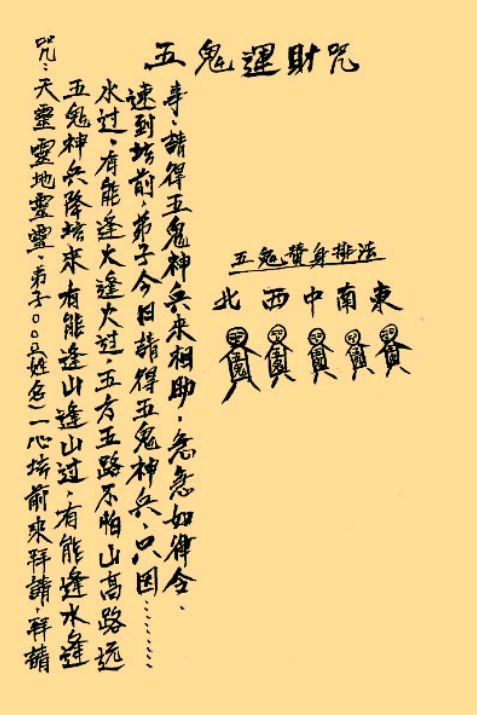 五鬼運財咒
咒:天靈靈地靈靈,弟子○○○(姓名)一心坛前來拜請,拜請
五鬼神兵降坛來有能逢山逢山过,有能逢水逢
水过,有能逢火逢火过,五方五路不怕山高路远
速到坛前,弟子今日請得五鬼神兵,只因………
事,請得五鬼神兵來相助,急急如律令.
五鬼替身排法
北 西 中 南 東